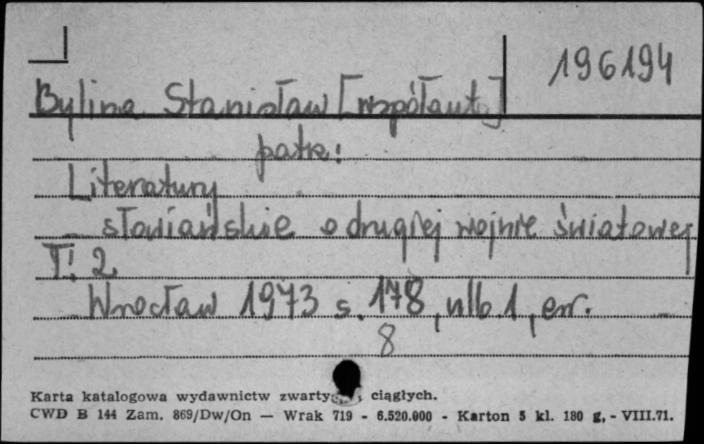 196194
Bylina Stanisław [współaut.]
patrz:
Literatury
słowiańskie o drugiej wojnie światowej
T. 2
Wrocław 1973 s. 178, nlb. 1, err.
8
Karta katalogowa wydawnictw zwarty ciągłych.
CWD B 144 Zam. 869/Dw/On — Wrak 719 - 6.520.000 - Karton 5 kl. 180 g. - VIII.71.